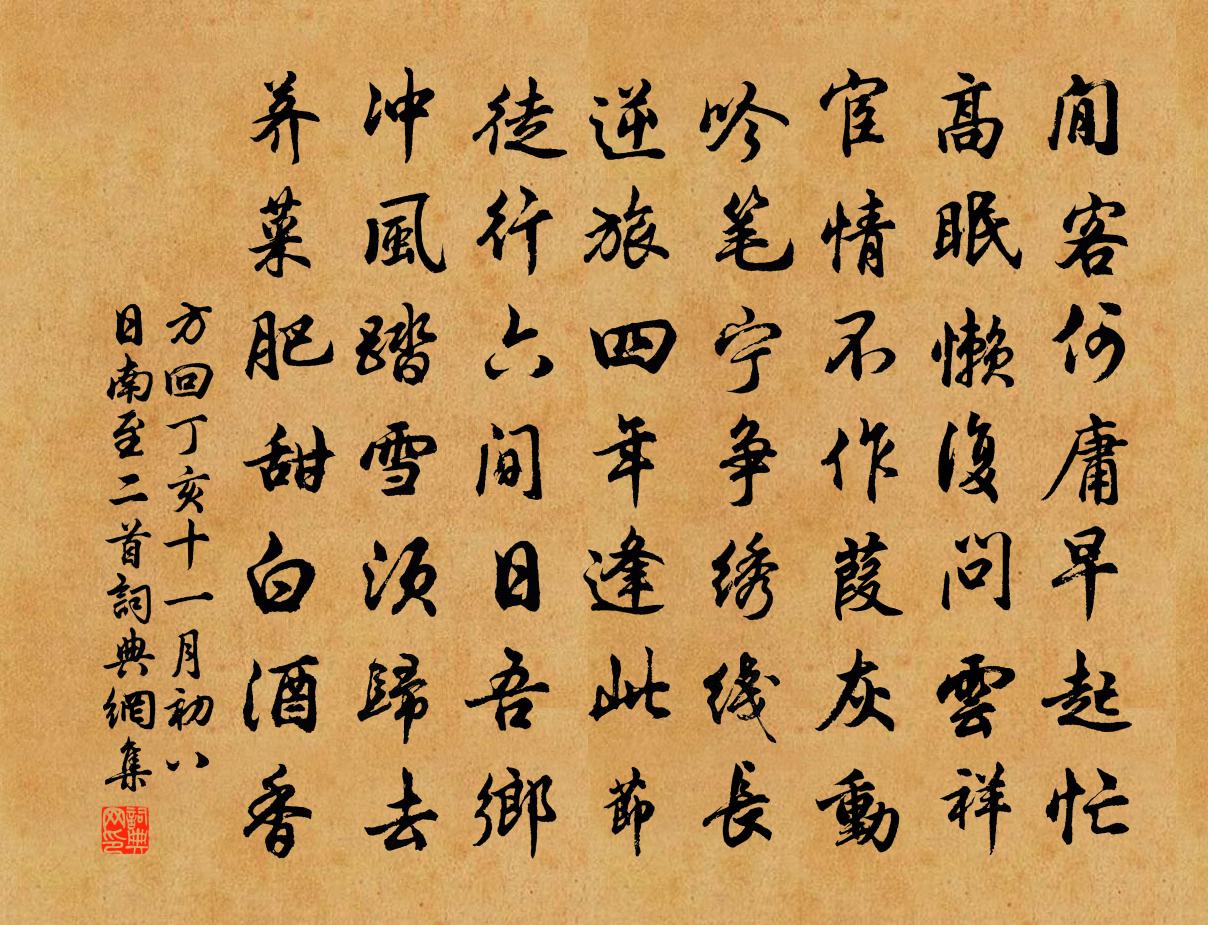 閒客何庸早起忙
高眠懶復問雲祥
宦情不作葭灰動
吟笔宁争绣线長
逆旅四年逢此節
徒行六间日吾鄉
冲風踏雪须歸去
荞菜肥甜白酒香
方回丁亥十一月初八
日南至二首詞典網集
詞典
网印